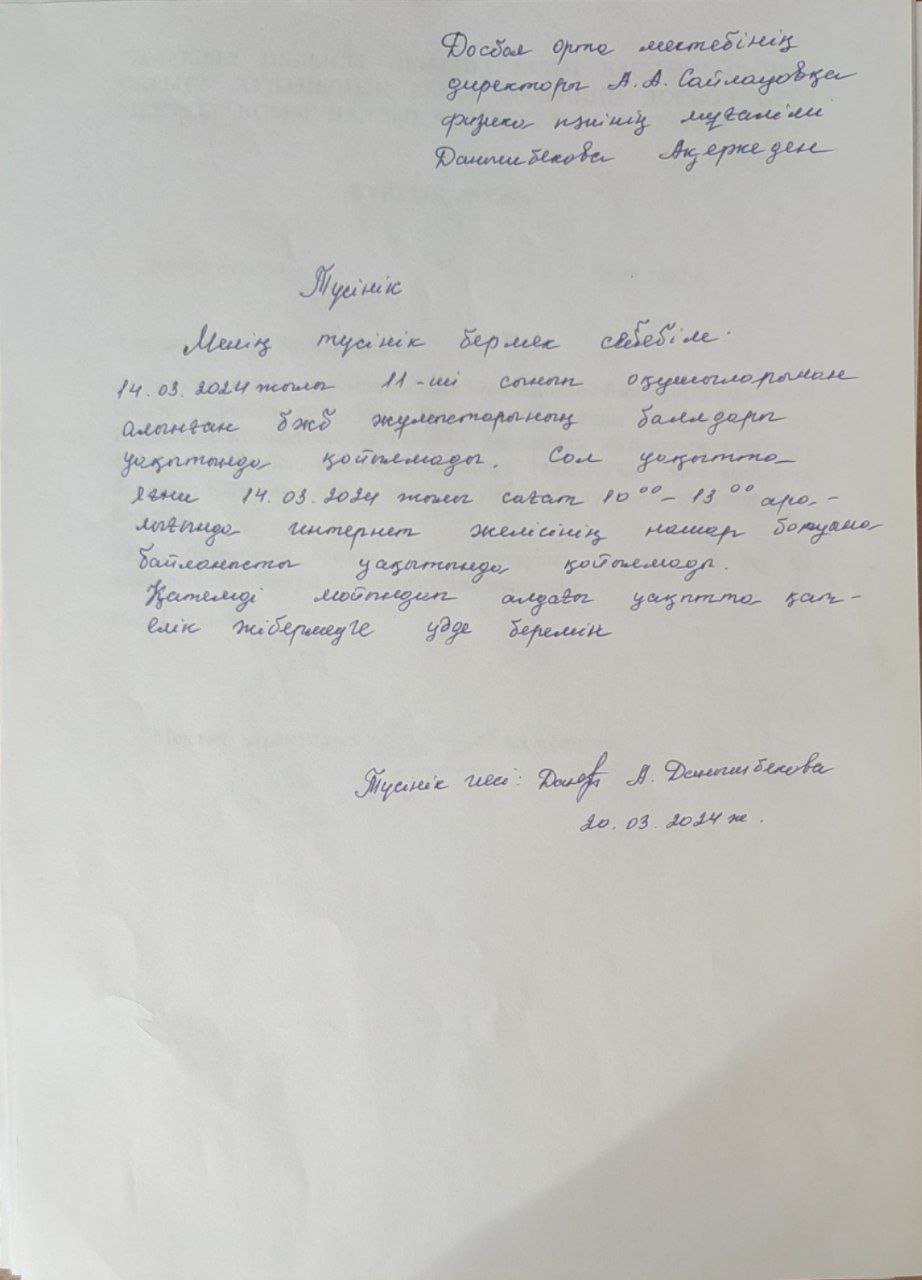 Досбол орта мектебінің
директоры А.А. Сайлауовқа
физика пәнінің мұғалімі
Данышбекова Ақеркеден
Түсінік
Менің түсінік бермек себебім:
14.03.2024 жылы 11-ші сынып оқушыларынан
алынған бжб жұмыстарының баллдары
уақытында қойылмады. Сол уақытта
яғни 14.03.2024 жылы сағат 10⁰⁰- 13⁰⁰ ара-
лығында интернет желісінің нашар болуына
байланысты уақытында қойылмады.
Қатемді мойындап алдағы уақытта қат-
елік жібермеуге уәде беремін
Түсінік иесі: А. Данышбекова
20.03.2024 ж.